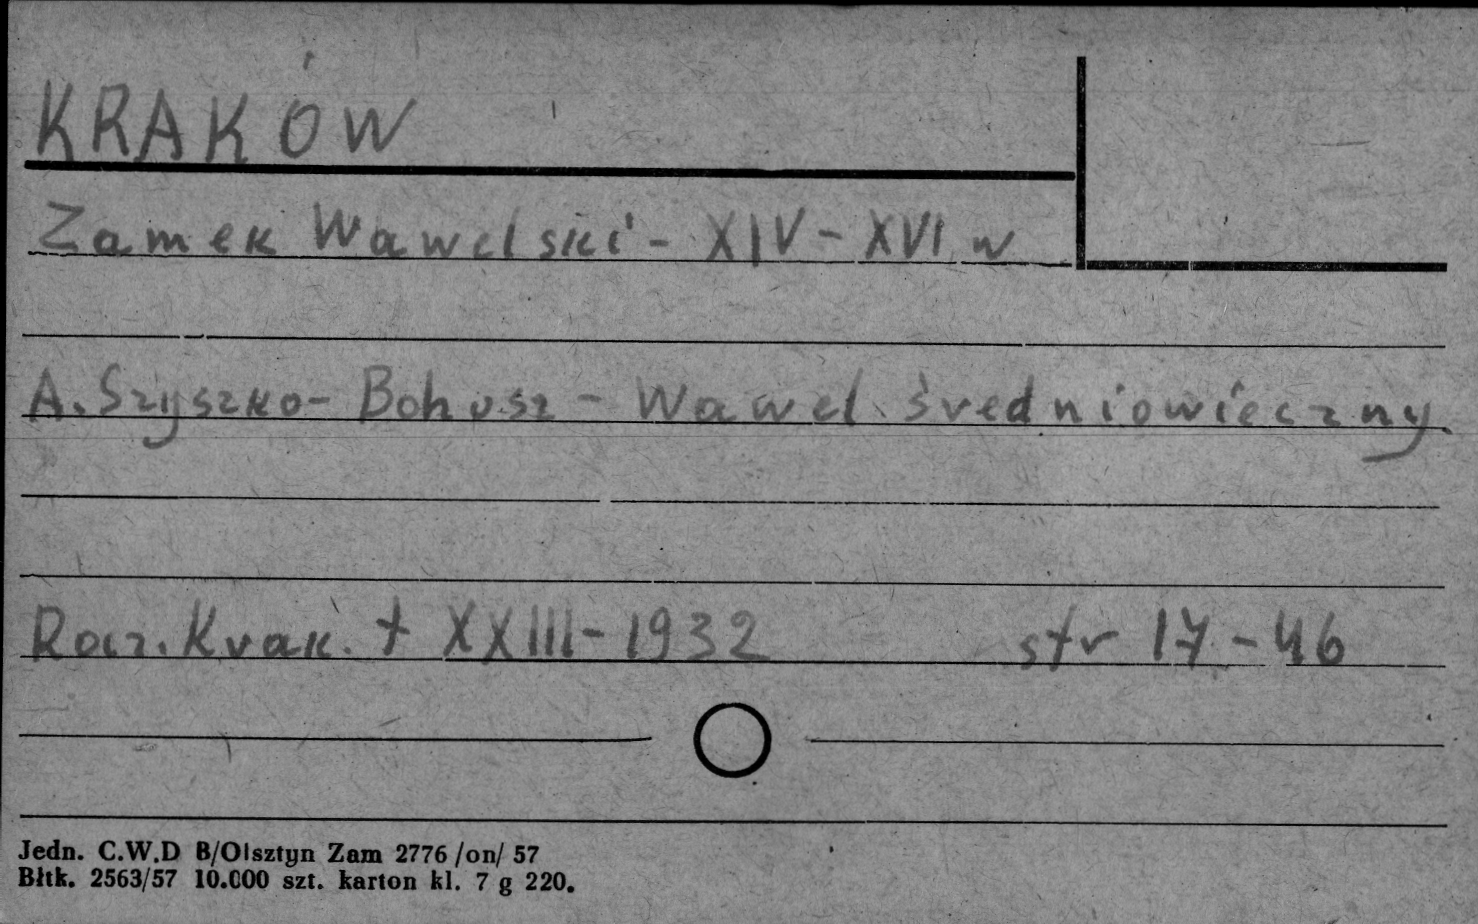 KRAKÓW
Zamek Wawelski - XIV - XVI w
A. Szyszko - Bohusz - Wawel średniowieczny.
Rocz. Krak. t XXIII - 1932 str 17 - 46
Jedn. C.W.D B/Olsztyn Zam 2776 /on/ 57
Błtk. 2563/57 10.000 szt. karton kl. 7 g 220.